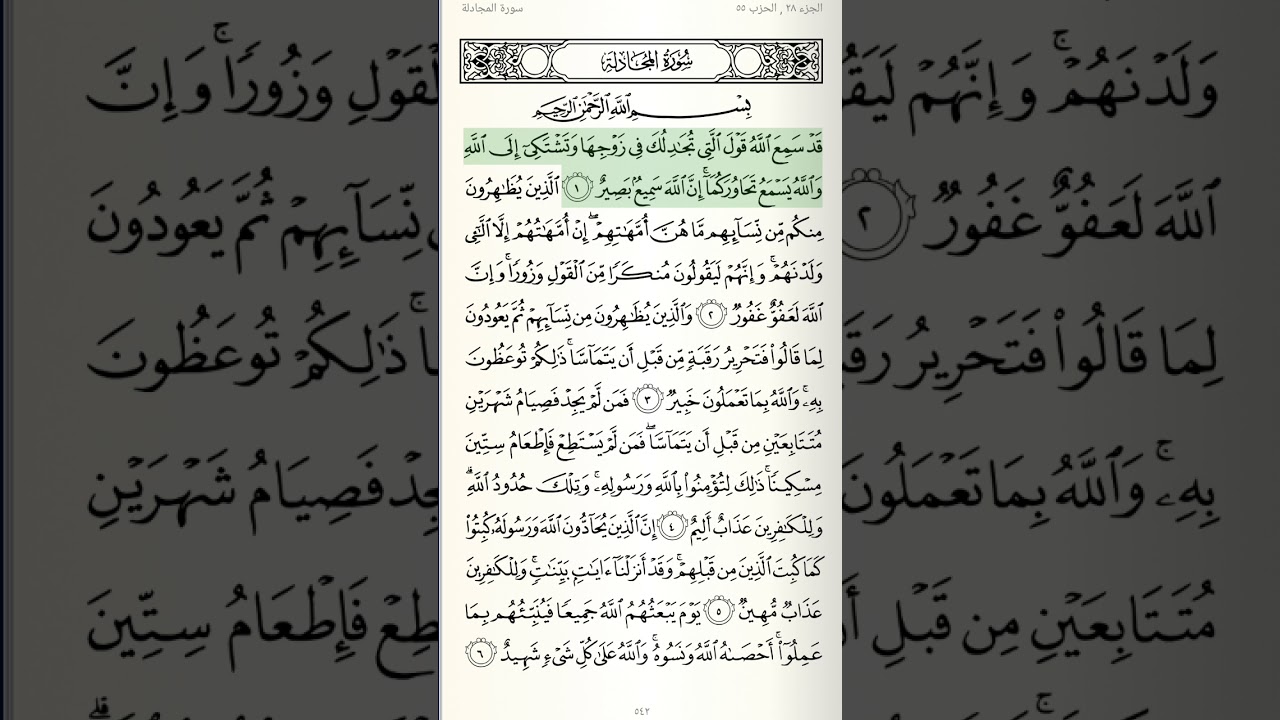 الجزء ٢٨ , الحزب ٥٥
سورة المجادلة
سُورَةُ المُجَادلَةِ
بِسْمِ ٱللَّهِ ٱلرَّحْمَٰنِ ٱلرَّحِيمِ
قَدْ سَمِعَ ٱللَّهُ قَوْلَ ٱلَّتِى تُجَٰدِلُكَ فِى زَوْجِهَا وَتَشْتَكِىٓ إِلَى ٱللَّهِ
وَٱللَّهُ يَسْمَعُ تَحَاوُرَكُمَآ ۚ إِنَّ ٱللَّهَ سَمِيعٌۢ بَصِيرٌ ١ ٱلَّذِينَ يُظَٰهِرُونَ
مِنكُم مِّن نِّسَآئِهِم مَّا هُنَّ أُمَّهَٰتِهِمْ ۖ إِنْ أُمَّهَٰتُهُمْ إِلَّا ٱلَّٰٓـِٔى
وَلَدْنَهُمْ ۚ وَإِنَّهُمْ لَيَقُولُونَ مُنكَرًا مِّنَ ٱلْقَوْلِ وَزُورًا ۚ وَإِنَّ
ٱللَّهَ لَعَفُوٌّ غَفُورٌ ٢ وَٱلَّذِينَ يُظَٰهِرُونَ مِن نِّسَآئِهِمْ ثُمَّ يَعُودُونَ
لِمَا قَالُوا۟ فَتَحْرِيرُ رَقَبَةٍ مِّن قَبْلِ أَن يَتَمَآسَّا ۚ ذَٰلِكُمْ تُوعَظُونَ
بِهِۦ ۚ وَٱللَّهُ بِمَا تَعْمَلُونَ خَبِيرٌ ٣ فَمَن لَّمْ يَجِدْ فَصِيَامُ شَهْرَيْنِ
مُتَتَابِعَيْنِ مِن قَبْلِ أَن يَتَمَآسَّا ۖ فَمَن لَّمْ يَسْتَطِعْ فَإِطْعَامُ سِتِّينَ
مِسْكِينًا ۚ ذَٰلِكَ لِتُؤْمِنُوا۟ بِٱللَّهِ وَرَسُولِهِۦ ۚ وَتِلْكَ حُدُودُ ٱللَّهِ ۗ
وَلِلْكَٰفِرِينَ عَذَابٌ أَلِيمٌ ٤ إِنَّ ٱلَّذِينَ يُحَآدُّونَ ٱللَّهَ وَرَسُولَهُۥ كُبِتُوا۟
كَمَا كُبِتَ ٱلَّذِينَ مِن قَبْلِهِمْ ۚ وَقَدْ أَنزَلْنَآ ءَايَٰتٍۭ بَيِّنَٰتٍ ۚ وَلِلْكَٰفِرِينَ
عَذَابٌ مُّهِينٌ ٥ يَوْمَ يَبْعَثُهُمُ ٱللَّهُ جَمِيعًا فَيُنَبِّئُهُم بِمَا
عَمِلُوٓا۟ ۚ أَحْصَىٰهُ ٱللَّهُ وَنَسُوهُ ۚ وَٱللَّهُ عَلَىٰ كُلِّ شَىْءٍ شَهِيدٌ ٦
٥٤٢